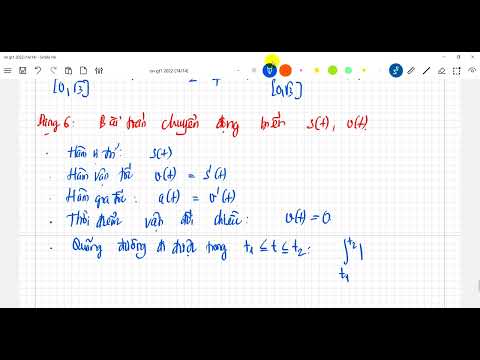 on gt1 2022 (14/14)
[0,√3] [0,√3]
Dạng 6: Bài toán chuyển động biết s(t), v(t)
· Hàm vị trí: s(t)
· Hàm vận tốc v(t) = s'(t)
· Hàm gia tốc: a(t) = v'(t)
· Thời điểm vật đổi chiều: v(t) = 0
· Quãng đường đi được trong t₁ ≤ t ≤ t₂: ∫ₜ₁ᵗ² |